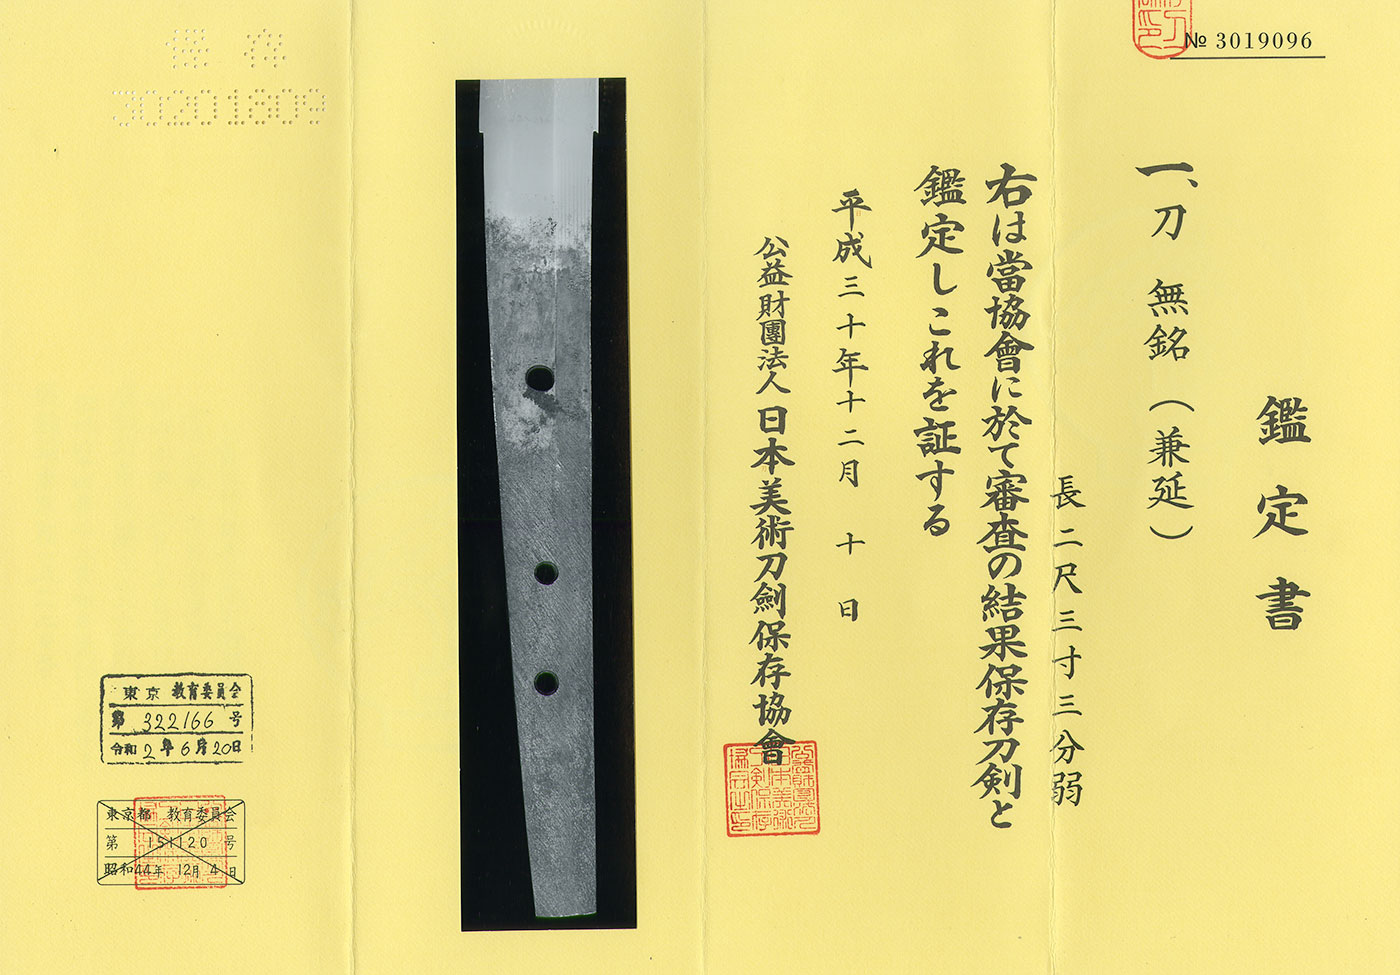 № 3019096
鑑定書
一、刀 無銘（兼延）
長二尺三寸三分弱
右は當協會に於て審査の結果保存刀剣と
鑑定しこれを証する
平成三十年十二月 十 日
公益財團法人 日本美術刀劍保存協會
保存
30201809
東京 教育委員会
第 322166 号
令和 2年 6月 20日
東京都 教育委員会
第 151120 号
昭和44年 12月 4日